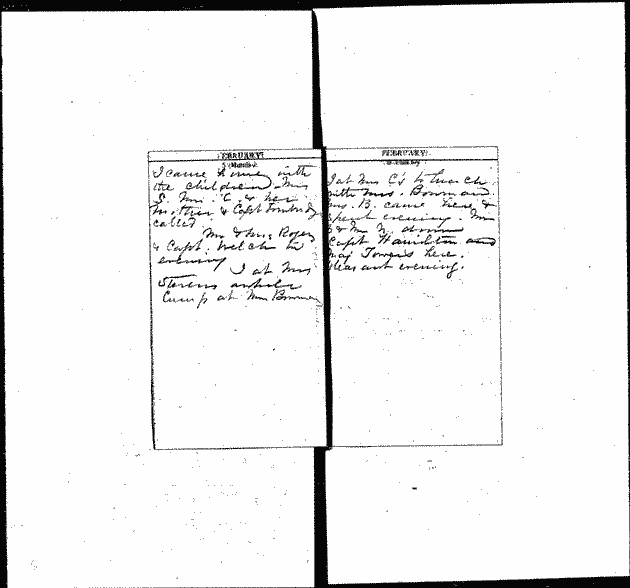 FEBRUARY
I came home with
the children. Mrs
S. Mrs. C. & her
mother & Capt
called
Mr & Mrs Roger
& Capt. Welch in
evening
I at Mrs
Stevens while
Cump at Mrs Bowman
FEBRUARY
I at Mrs C's to lunch
with Mrs. Bowman.
Mrs. B. came here &
spent evening. Mr
& Mr
Capt Hamilton and
Maj Towers here.
Pleasant evening.